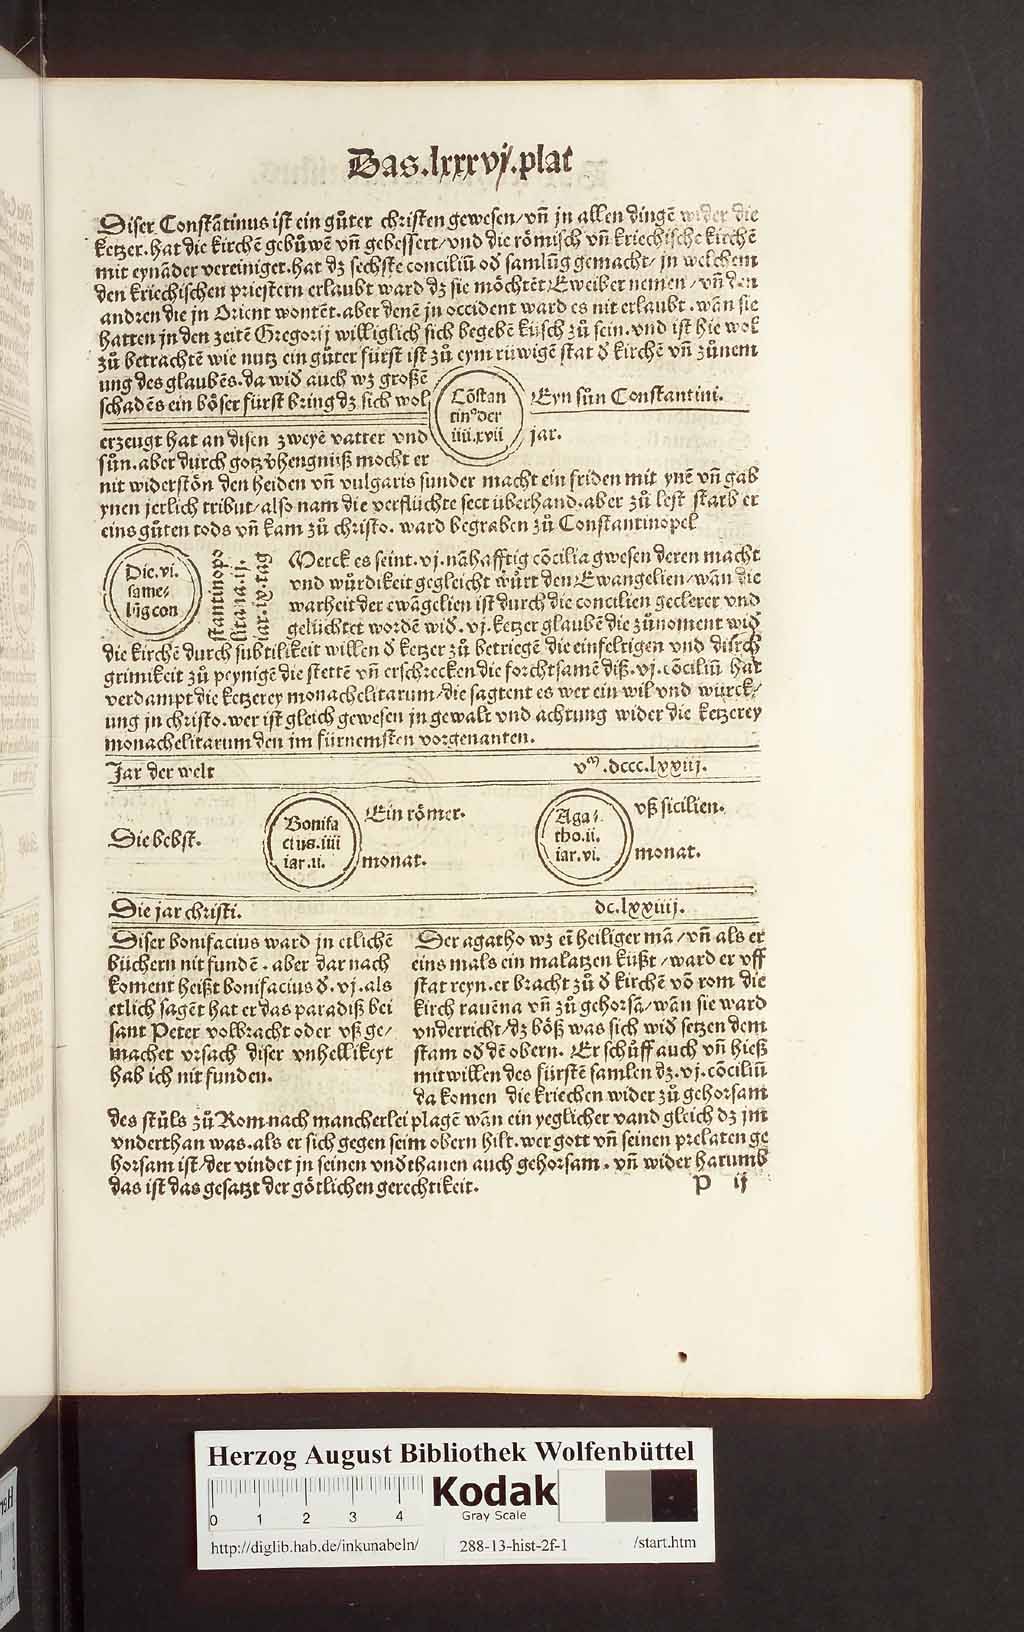 Das.lxxxvj.plat
Diser Constãtinus ist ein gůter christen gewesen/vñ jn allen dingẽ wider die
ketzer.hat die kirchẽ gebůwẽ vñ gebessert/vnd die rőmisch vñ kriechische kirchẽ
mit eynãder vereiniget.hat dz sechste conciliũ oď samlũg gemacht/jn welchem
den kriechischen priestern erlaubt ward dz sie mőchtẽt Eweiber nemen/vñ den
andren die jn Orient wontẽt.aber denẽ jn occident ward es nit erlaubt.wãn sie
hatten jn den zeitẽ Gregorij williglich sich begebẽ küsch zů sein.vnd ist hie wol
zů betrachtẽ wie nutz ein gůter fürst ist zů eym rüwigẽ stat ď kirchẽ vñ zůnem
ung des glaubẽs.da wiď auch wz großẽ
schadẽs ein bőser fürst bring dz sich wol
Cõstan
tinꝰder
iiii.xvii
Eyn sůn Constantini.
jar.
erzeugt hat an disen zweyẽ vatter vnd
sůn.aber durch gotz v̉hengnüß mocht er
nit widerstőn den heiden vñ vulgaris sunder macht ein friden mit ynẽ vñ gab
ynen jerlich tribut/also nam die verflüchte sect überhand.aber zů lest starb er
eins gůten tods vñ kam zů christo.ward begraben zů Constantinopel
Die.vi.
same⸗
lũg con
stantinopo
litana.ia.ij.
iar.ix.tag
Merck es seint.vj.nãhafftig cõcilia gwesen deren macht
vnd würdikeit gegleicht wůrt den Ewangelien/wãn die
warheit der ewãgelien ist durch die concilien geclerer vnd
gelüchtet wordẽ wiď.vj.ketzer glaubẽ die zůnoment wiď
die kirchẽ durch subtilikeit willen ď ketzer zů betriegẽ die einfeltigen vnd durch
grimikeit zů peynigẽ die stettẽ vñ erschrecken die forchtsamẽ diß.vj.cõciliũ hat
verdampt die ketzerey monachelitarum/die sagtent es wer ein wil vnd würck⸗
ung jn christo.wer ist gleich gewesen jn gewalt vnd achtung wider die ketzerey
monachelitarum den jm fürnemsten vorgenanten.
Jar der welt
vᵐ.dccc.lxxiij.
Die bebst.
Bonifa
cius.iiii
iar.ii.
Ein rőmer.
monat.
Aga⸗
tho.ii.
iar.vi.
vß sicilien.
monat.
Die jar christi.
dc.lxxiiij.
Diser bonifacius ward jn etlichẽ
büchern nit fundẽ.aber dar nach
koment heißt bonifacius ď.vj.als
etlich sagẽt hat er das paradiß bei
sant Peter volbracht oder vß ge/
machet vrsach diser vnhellikeyt
hab ich nit funden.
Der agatho wz eĩ heiliger mã/vñ als er
eins mals ein malatzen küßt/ward er vff
stat reyn.er bracht zů ď kirchẽ võ rom die
kirch rauẽna vñ zů gehorsã/wãn sie ward
vnderricht/dz bőß was sich wiď setzen dem
stam oď dẽ obern. Er schůff auch vñ hieß
mit willen des fürstẽ samlen dz.vj.cõciliũ
da komen die kriechen wider zů gehorsam
des stůls zů Rom.nach mancherlei plagẽ wãn ein yeglicher vand gleich dz jm
vnderthan was.als er sich gegen seim obern hilt.wer gott vñ seinen prelaten ge
horsam ist/der vindet jn seinen vnďthanen auch gehorsam.vñ wider harumb
das ist das gesatzt der gőtlichen gerechtikeit.
P ij
Herzog August Bibliothek Wolfenbüttel
0 1 2 3 4
Kodak
Gray Scale
http://diglib.hab.de/inkunabeln/ 288-13-hist-2f-1 /start.htm